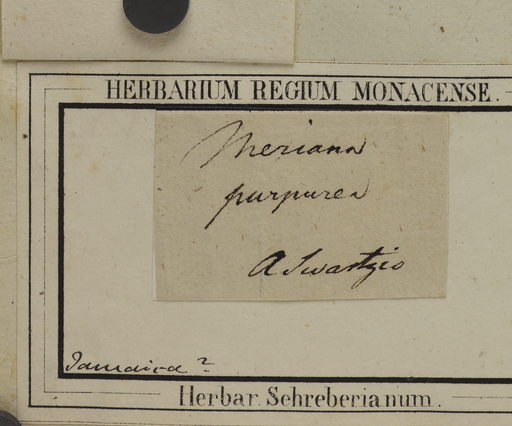 HERBARIUM REGIUM MONACENSE.
Meriana
purpurea
A Swartzio
Jamaica?
Herbar. Schreberianum.